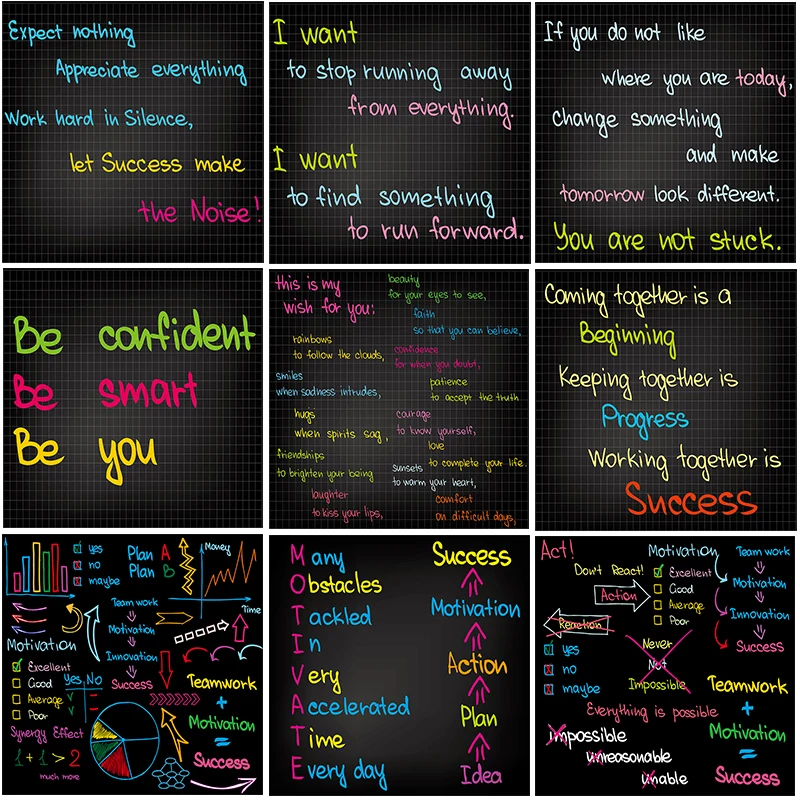 Expect nothing
Appreciate everything
Work hard in Silence,
let Success make
the Noise!
I want
to stop running away
from everything.
I want
to find something
to run forward.
If you do not like
where you are today,
change something
and make
tomorrow look different.
You are not stuck.
Be confident
Be smart
Be you
this is my
wish for you:
rainbows
to follow the clouds,
smiles
when sadness intrudes,
hugs
when spirits sag,
friendships
to brighten your being
laughter
to kiss your lips,
beauty
for your eyes to see,
faith
so that you can believe,
confidence
for when you doubt,
patience
to accept the truth
courage
to know yourself,
love
to complete your life.
sunsets
to warm your heart,
comfort
on difficult days,
Coming together is a
Beginning
Keeping together is
Progress
Working together is
Success
yes
no
maybe
Plan A
Plan B
Money
Time
Team work
Motivation
Innovation
Success
Motivation
Excellent
Good
Average
Poor
Yes No
Synergy Effect
1 + 1 > 2
much more
Teamwork
+
Motivation
=
Success
Many
Obstacles
Tackled
In
Very
Accelerated
Time
Every day
Success
Motivation
Action
Plan
Idea
Act!
Don't React!
Action
Reaction
yes
no
maybe
Motivation
Excellent
Good
Average
Poor
Team work
Motivation
Innovation
Success
Never
Not
Impossible
Everything is possible
Impossible
Unreasonable
Unable
Teamwork
+
Motivation
=
Success